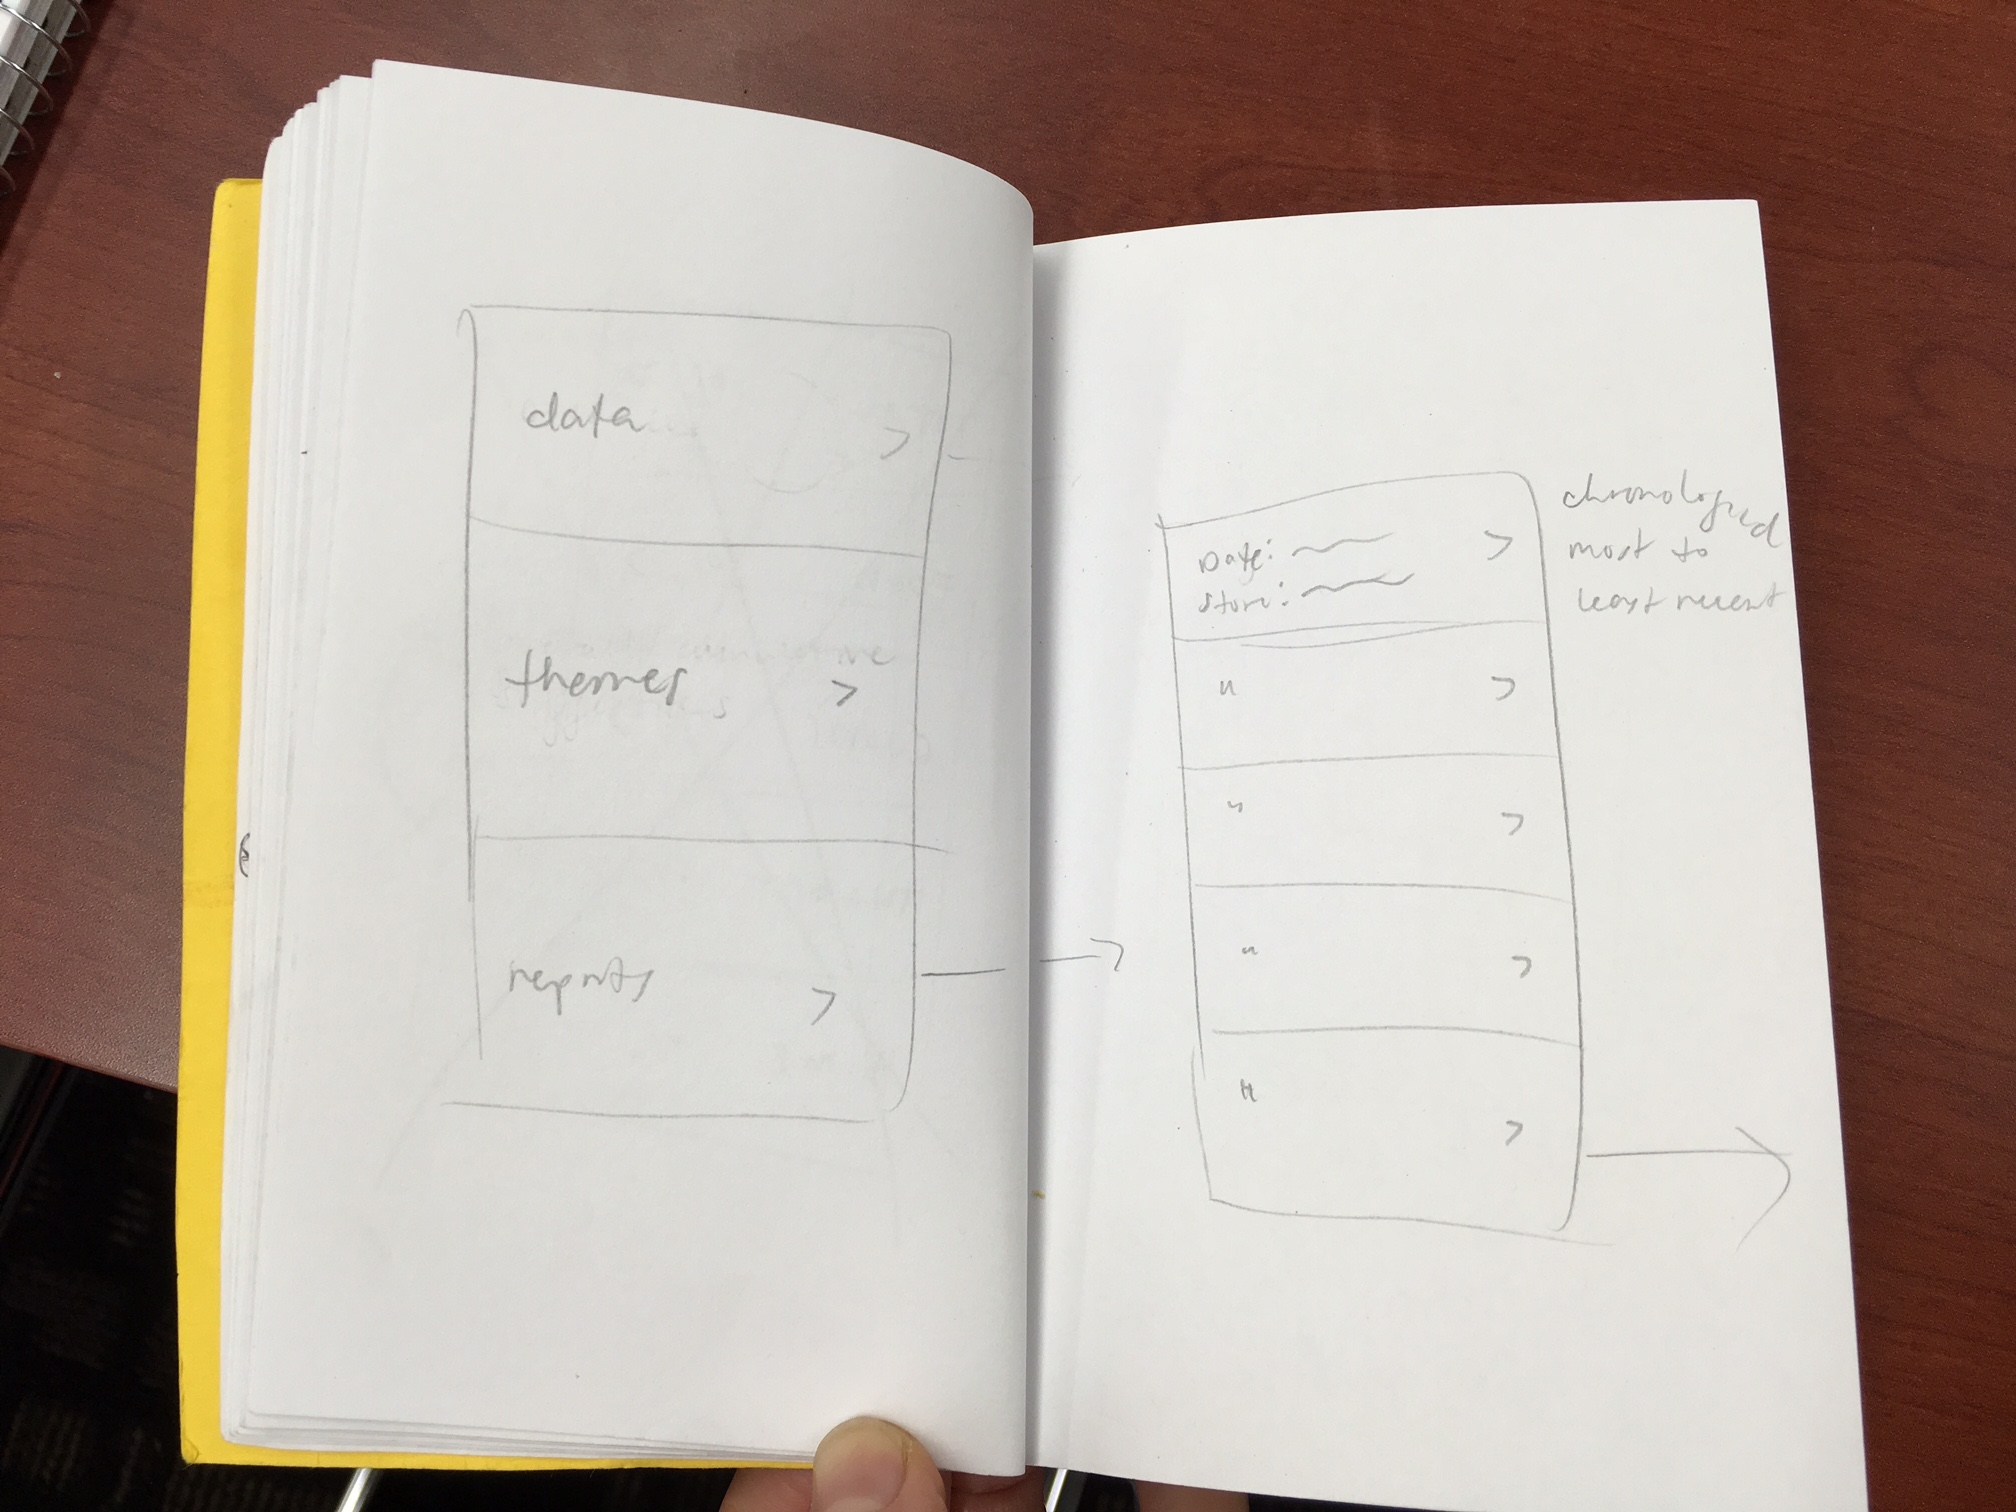 data >
themes >
reports >
Date: >
Store:
" >
" >
" >
" >
chronological
most to
least recent